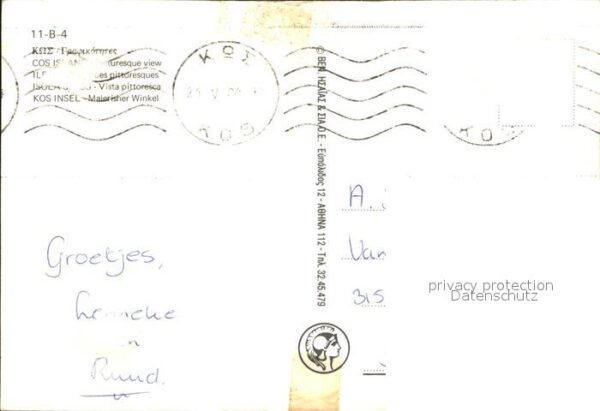 11-B-4
ΚΩΣ - Γραφικότητες
COS picturesque view
pittoresques
Vista pittoresca
KOS INSEL - Malerisher Winkel
ΚΩΣ
ΚΟΣ
© ΒΕΝ ΗΣΑΪΑΣ & ΣΙΑ Ο.Ε. - Εὐπόλιδος 12 - ΑΘΗΝΑ 112 - Τηλ. 32.45.479
Groetjes,
Lenneke
en
Ruud.
A.
Van
315
privacy protection
Datenschutz